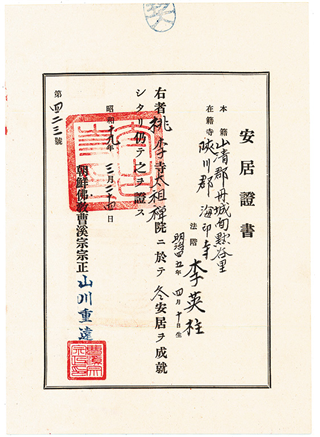 安居證書
本籍 山清郡丹城面默谷里
在籍寺 陜川郡海印寺
法階 李英柱
明治四五年四月十日生
右者桃李寺太祖禪院ニ於テ冬安居ヲ成就
シタリ仍テ之ヲ證ス
昭和十九年三月二十四日
朝鮮佛教曹溪宗宗正 山川重遠
第四二三號